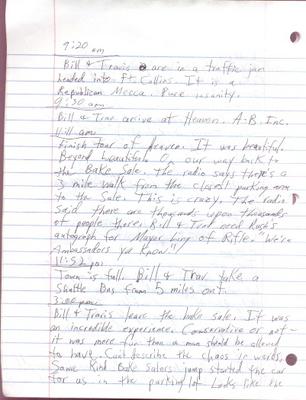 9:20 am
Bill & Travis are in a traffic jam
headed into Ft. Collins. It is a
Republican Mecca. Pure insanity.
9:30 am
Bill & Trav arrive at Heaven. A-B. Inc.
11:11 am
Finish tour of Heaven. It was beautiful.
Beyond beautiful. On our way back to
the Bake Sale. The radio says there's a
3 mile walk from the closest parking area
to the Sale. This is crazy. The radio
said there are thousands upon thousands
of people there. Bill & Trav need Rush's
autograph for Mayor Ling of Rifle. "We're
Ambassadors ya know!"
11:52 pm
Town is full. Bill & Trav take a
Shuttle Bus from 5 miles out.
3:00 pm
Bill & Travis leave the bake sale. It was
an incredible experience. Conservative or not -
it was more fun than a man should be allowed
to have. Can't describe the chaos in words.
Some kind Bake Salers jump started the car
for us in the parking lot. Looks like the